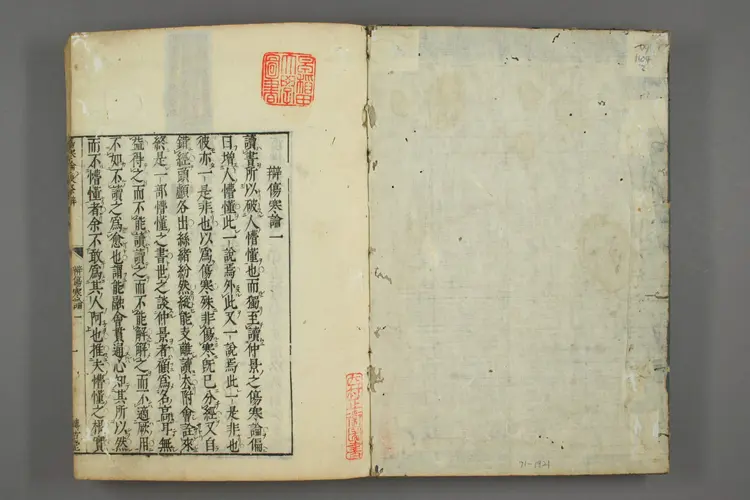 辯傷寒論一
讀書所以破人懵懂也而獨至讀仲景之傷寒論偏
日增人懵懂此一說焉外此又一說焉此一是非也
彼亦一是非也以爲傷寒殊非傷寒旣已分經又自
錯經頭顱分出絲緒紛然縱能支離讀去附會詮來
終是一部懵懂之書世之談仲景者願爲名高耳無
益得之而不能讀讀之而不能解解之而不適厥用
不如不讀之爲愈也謂能融會貫通心知其所以然
而不懵懂者余不敢爲其人阿也推夫懵懂之根實
辨傷寒論一
上
早稻田大學圖書
71-1921